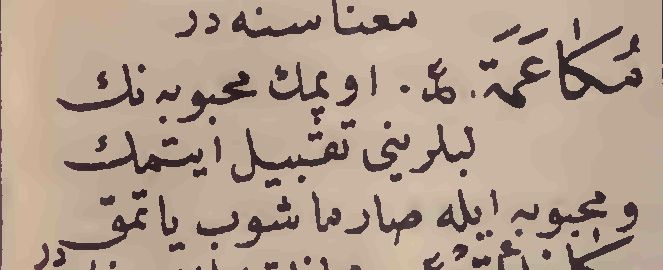 معناسنه در
مُكَاعَمَة . اوپمك محبوبه نك
لبلريني تقبيل ايتمك
و محبوبه ايله صارماشوب ياتمق